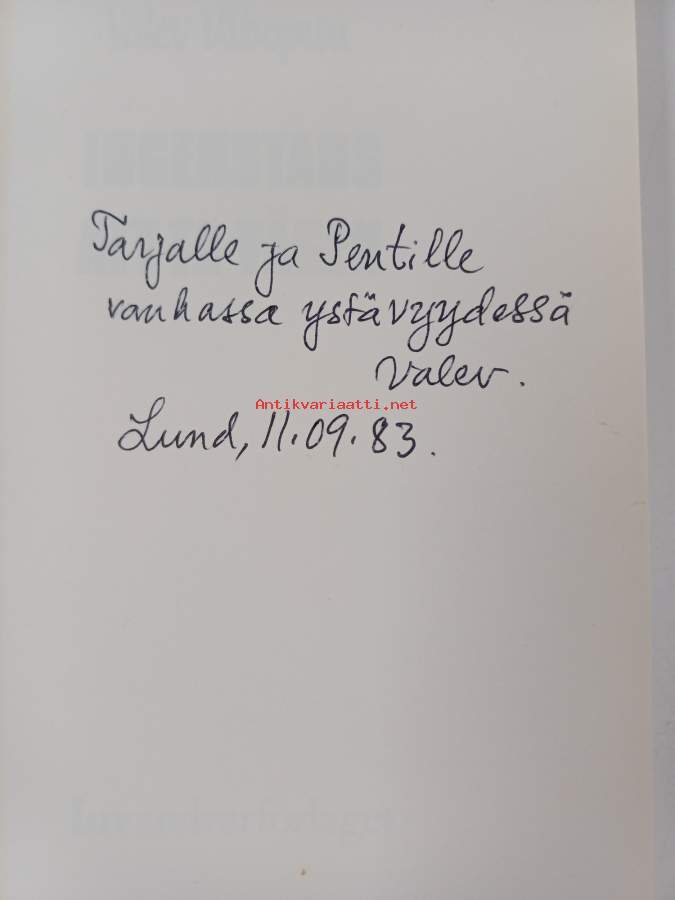 Tarjalle ja Pentille
vanhassa ystävyydessä
Valev.
Antikvariaatti.net
Lund, 11.09.83.